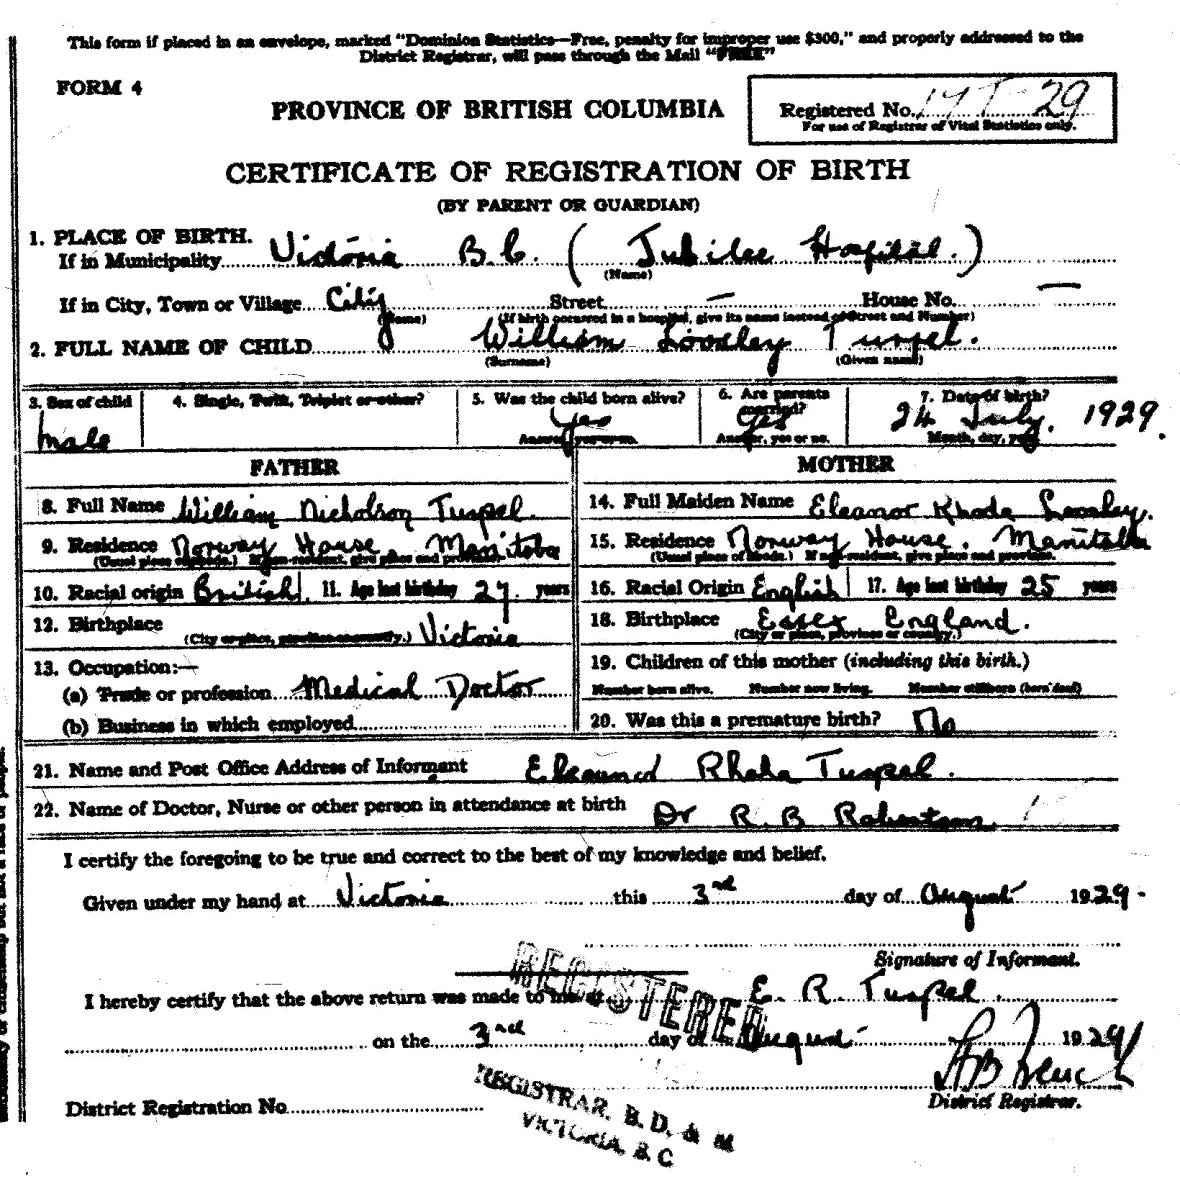 This form if placed in an envelope, marked "Dominion Statistics—Free, penalty for improper use $300," and properly addressed to the
District Registrar, will pass through the Mail "FREE"
FORM 4
PROVINCE OF BRITISH COLUMBIA
Registered No. 29
For use of Registrar of Vital Statistics only.
CERTIFICATE OF REGISTRATION OF BIRTH
(BY PARENT OR GUARDIAN)
1. PLACE OF BIRTH.
If in Municipality Victoria B.C. (Jubilee Hospital.)
(Name)
If in City, Town or Village City Street — House No. —
(Name) (If birth occurred in a hospital, give its name instead of Street and Number)
2. FULL NAME OF CHILD William Loveley Tuspel.
(Surname) (Given name)
3. Sex of child 4. Single, Twin, Triplet or other? 5. Was the child born alive? 6. Are parents married? 7. Date of birth?
Male Yes Yes 24 July, 1929.
Answer, yes or no. Answer, yes or no. Month, day, year
FATHER MOTHER
8. Full Name William Nicholson Tuspel. 14. Full Maiden Name Eleanor Rhoda Loveley.
9. Residence Norway House, Manitoba 15. Residence Norway House, Manitoba
(Usual place of abode.) If non-resident, give place and province. (Usual place of abode.) If non-resident, give place and province.
10. Racial origin British 11. Age last birthday 27 years 16. Racial Origin English 17. Age last birthday 25 years
12. Birthplace Victoria 18. Birthplace Essex England.
(City or place, province or country.) (City or place, province or country.)
13. Occupation:— 19. Children of this mother (including this birth.)
(a) Trade or profession Medical Doctor Number born alive. Number now living. Number stillborn (born dead)
(b) Business in which employed 20. Was this a premature birth? No
21. Name and Post Office Address of Informant Rhoda Tuspel.
22. Name of Doctor, Nurse or other person in attendance at birth Dr R. B Robertson.
I certify the foregoing to be true and correct to the best of my knowledge and belief.
Given under my hand at Victoria this 3rd day of August 1929.
Signature of Informant.
E. R. Tuspel.
I hereby certify that the above return was made to me at
REGISTERED
on the 3rd day of August 1929
District Registration No.
District Registrar.
REGISTRAR, B. D. & M
VICTORIA, B. C